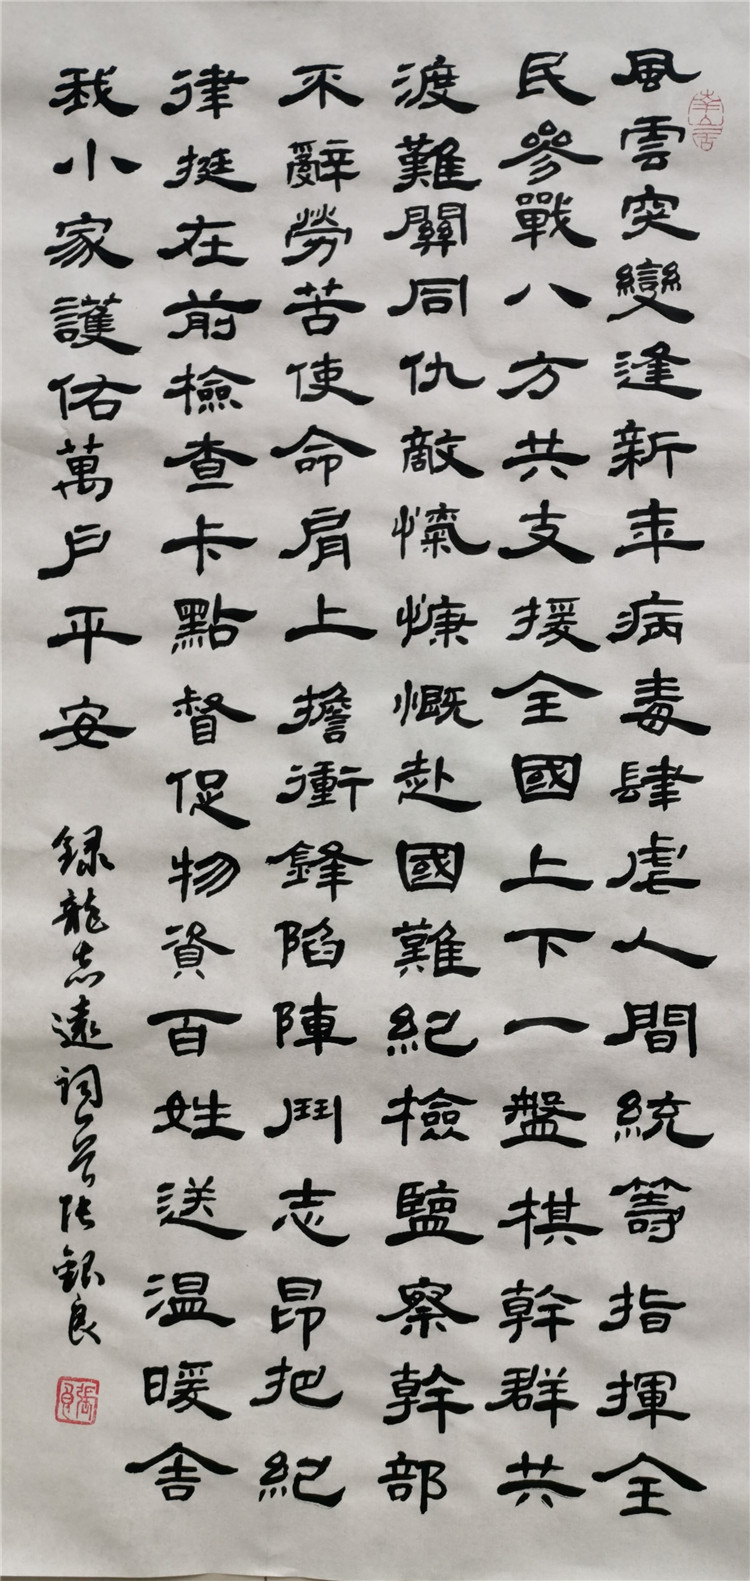 風雲突變逢新年病毒肆虐人間統籌指揮全
民參戰八方共支援全國上下一盤棋幹群共
渡難關同仇敵愾慷慨赴國難紀檢監察幹部
不辭勞苦使命肩上擔衝鋒陷陣鬥志昂把紀
律挺在前檢查卡點督促物資百姓送溫暖舍
我小家護佑萬戶平安 錄龍志遠詞一首張銀良